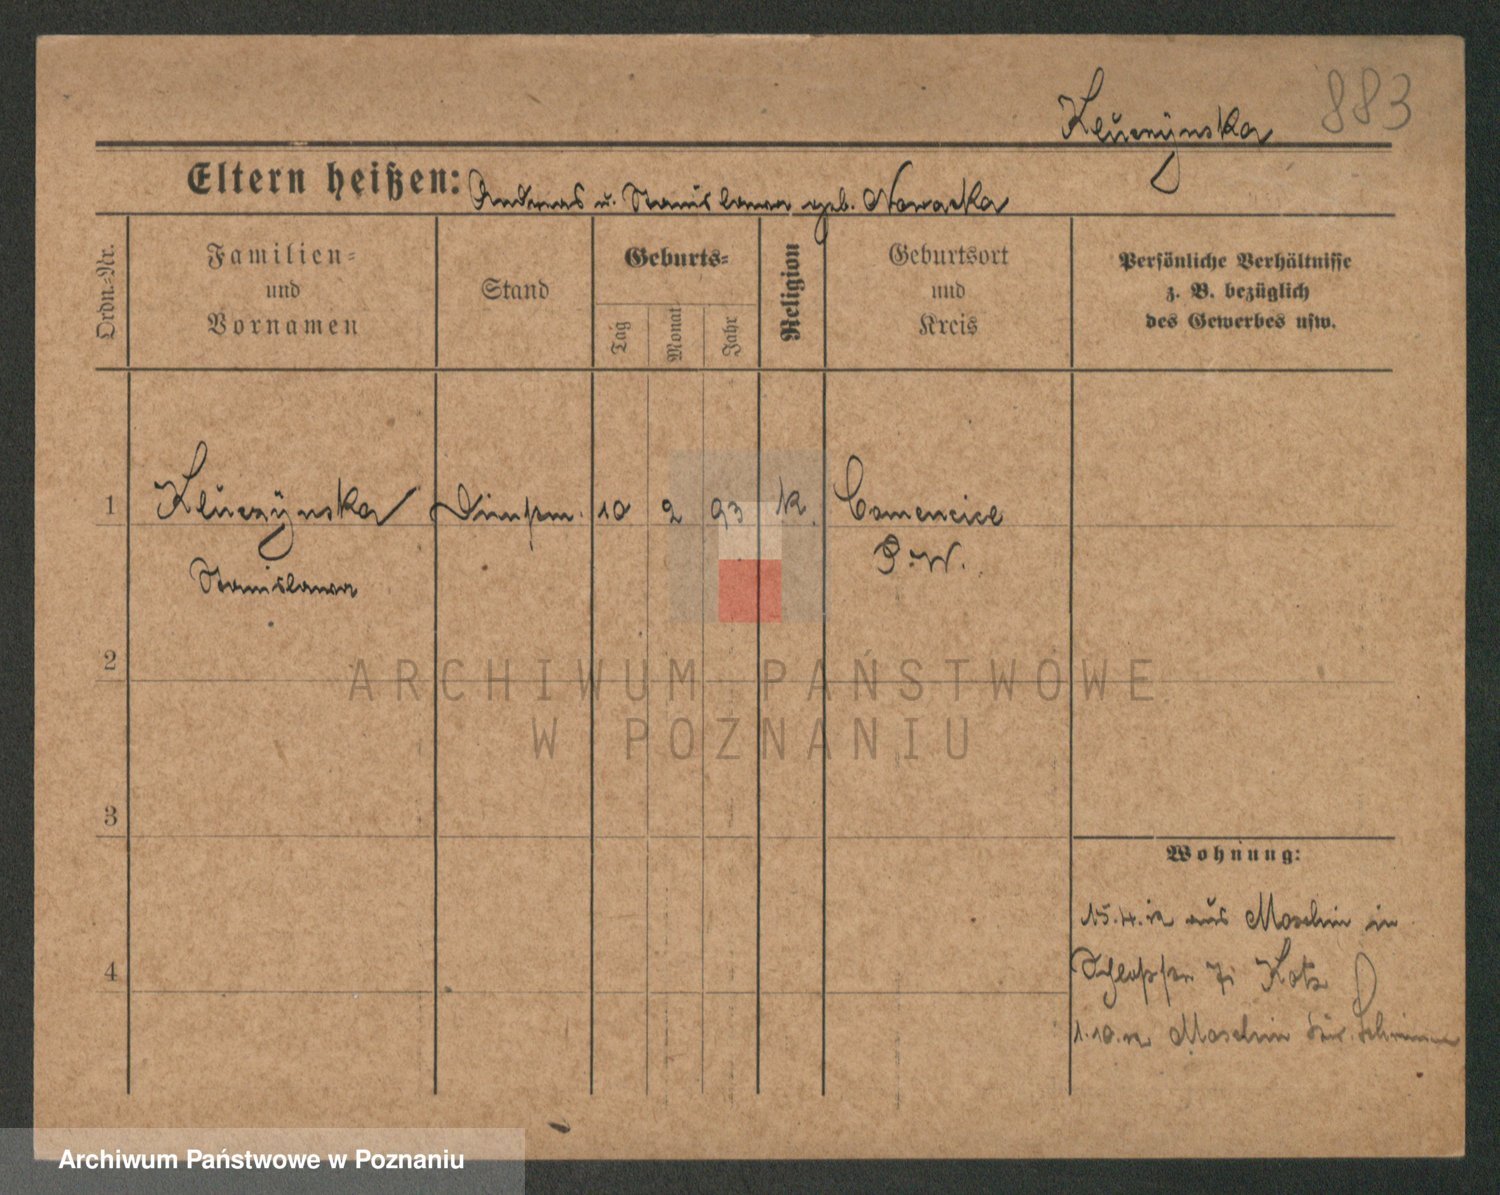 883
Kluczynska
Eltern heißen: Andreas u. Stanislawa geb. Nowacka
Ordn.-Nr.
Familien-
und
Vornamen
Stand
Geburts-
Tag
Monat
Jahr
Religion
Geburtsort
und
Kreis
Persönliche Verhältnisse
z. B. bezüglich
des Gewerbes usw.
1 Kluczynska 10 2 93 k.
Stanislawa
P. W.
2
3
4
Wohnung:
15.4.12 aus Moschin in
Kotz
1.10.12 Moschin
ARCHIWUM PAŃSTWOWE
W POZNANIU
Archiwum Państwowe w Poznaniu